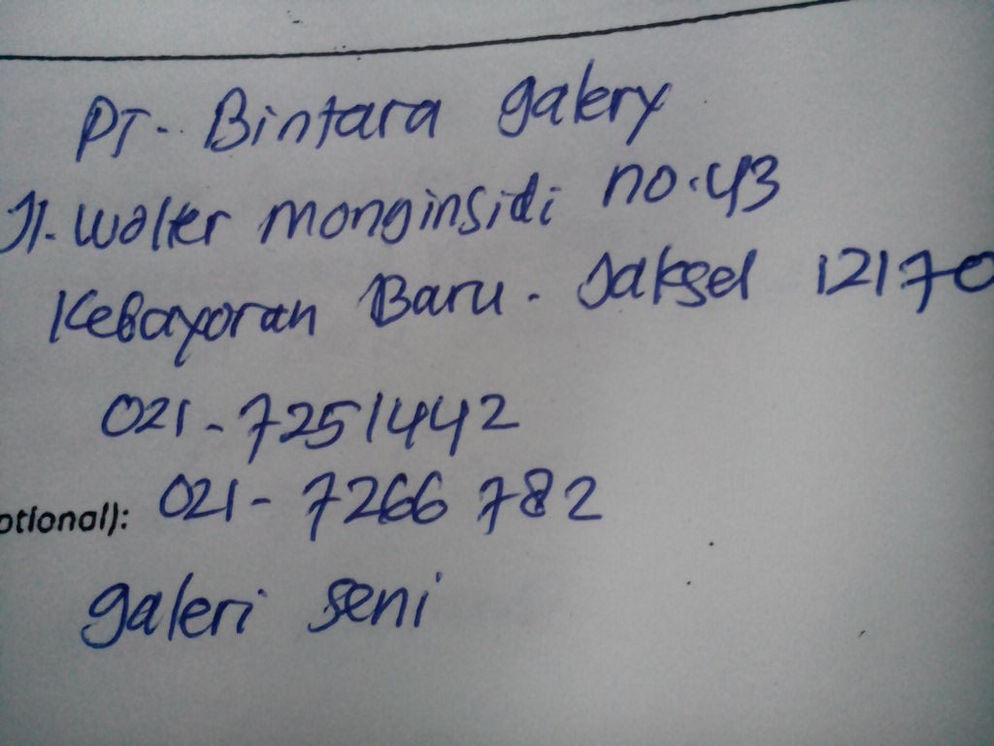 PT. Bintara galery
Jl. Wolter monginsidi no.43
Kebayoran Baru - Jaksel 12170
021-7251442
otional): 021-7266782
galeri seni